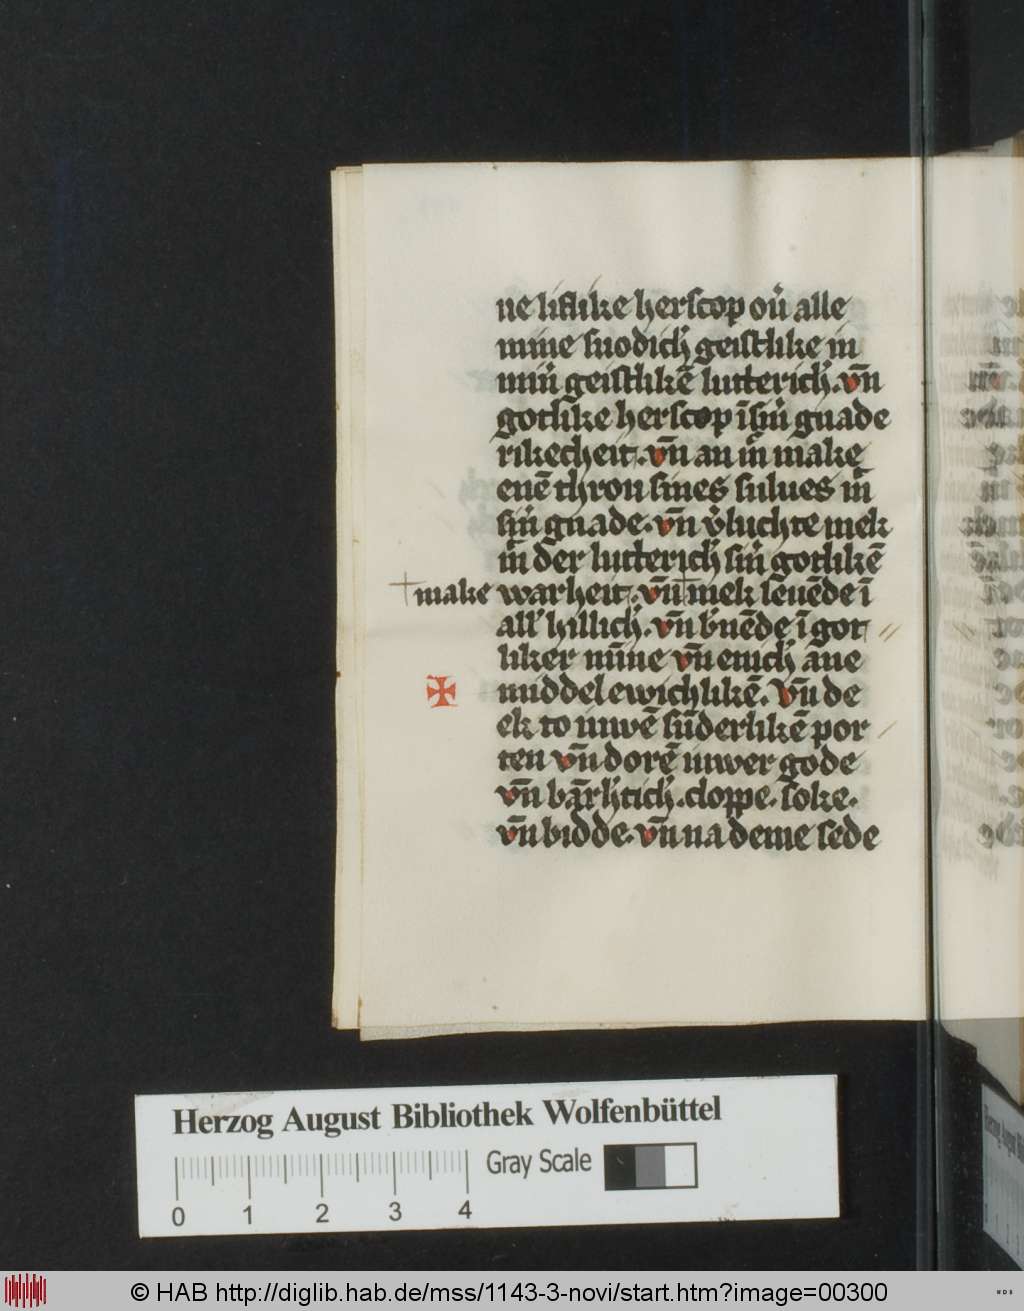 ne liflike herscop ou̍ alle
mine snodich̍ geistlike in
min̍ geistlikē lutterich̍. vn̄
gotlike herscop ī sin̍ gnade
rikecheit. vn̄ an m̄ make
enē thron sines sulues in̄
sin̍ gnade. vn̄ v̍luchte mek
in̄ der lutterich̍ sin̍ gotlikē
†make warheit. vn̄ † mek leuēde ī
all̍ hillich̍. vn̄ b̍nēde ī got
liker mīne vn̄ enich̍ ane
✠ middel ewichlikē. vn̄ de
ek to iuwē sūderlikē por
ten vn̄ dorē iuwer gode
vn̄ barh̍tich̍. cloppe. soke.
vn̄ bidde. vn̄ na deme sede
Herzog August Bibliothek Wolfenbüttel
Gray Scale
0 1 2 3 4
© HAB http://diglib.hab.de/mss/1143-3-novi/start.htm?image=00300